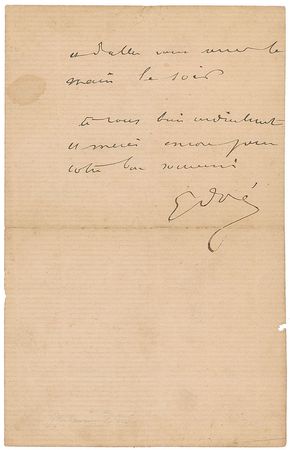 et d'aller vous serrer la
main le soir
à vous bien cordialement
et merci encore pour
votre bon souvenir
G Doré